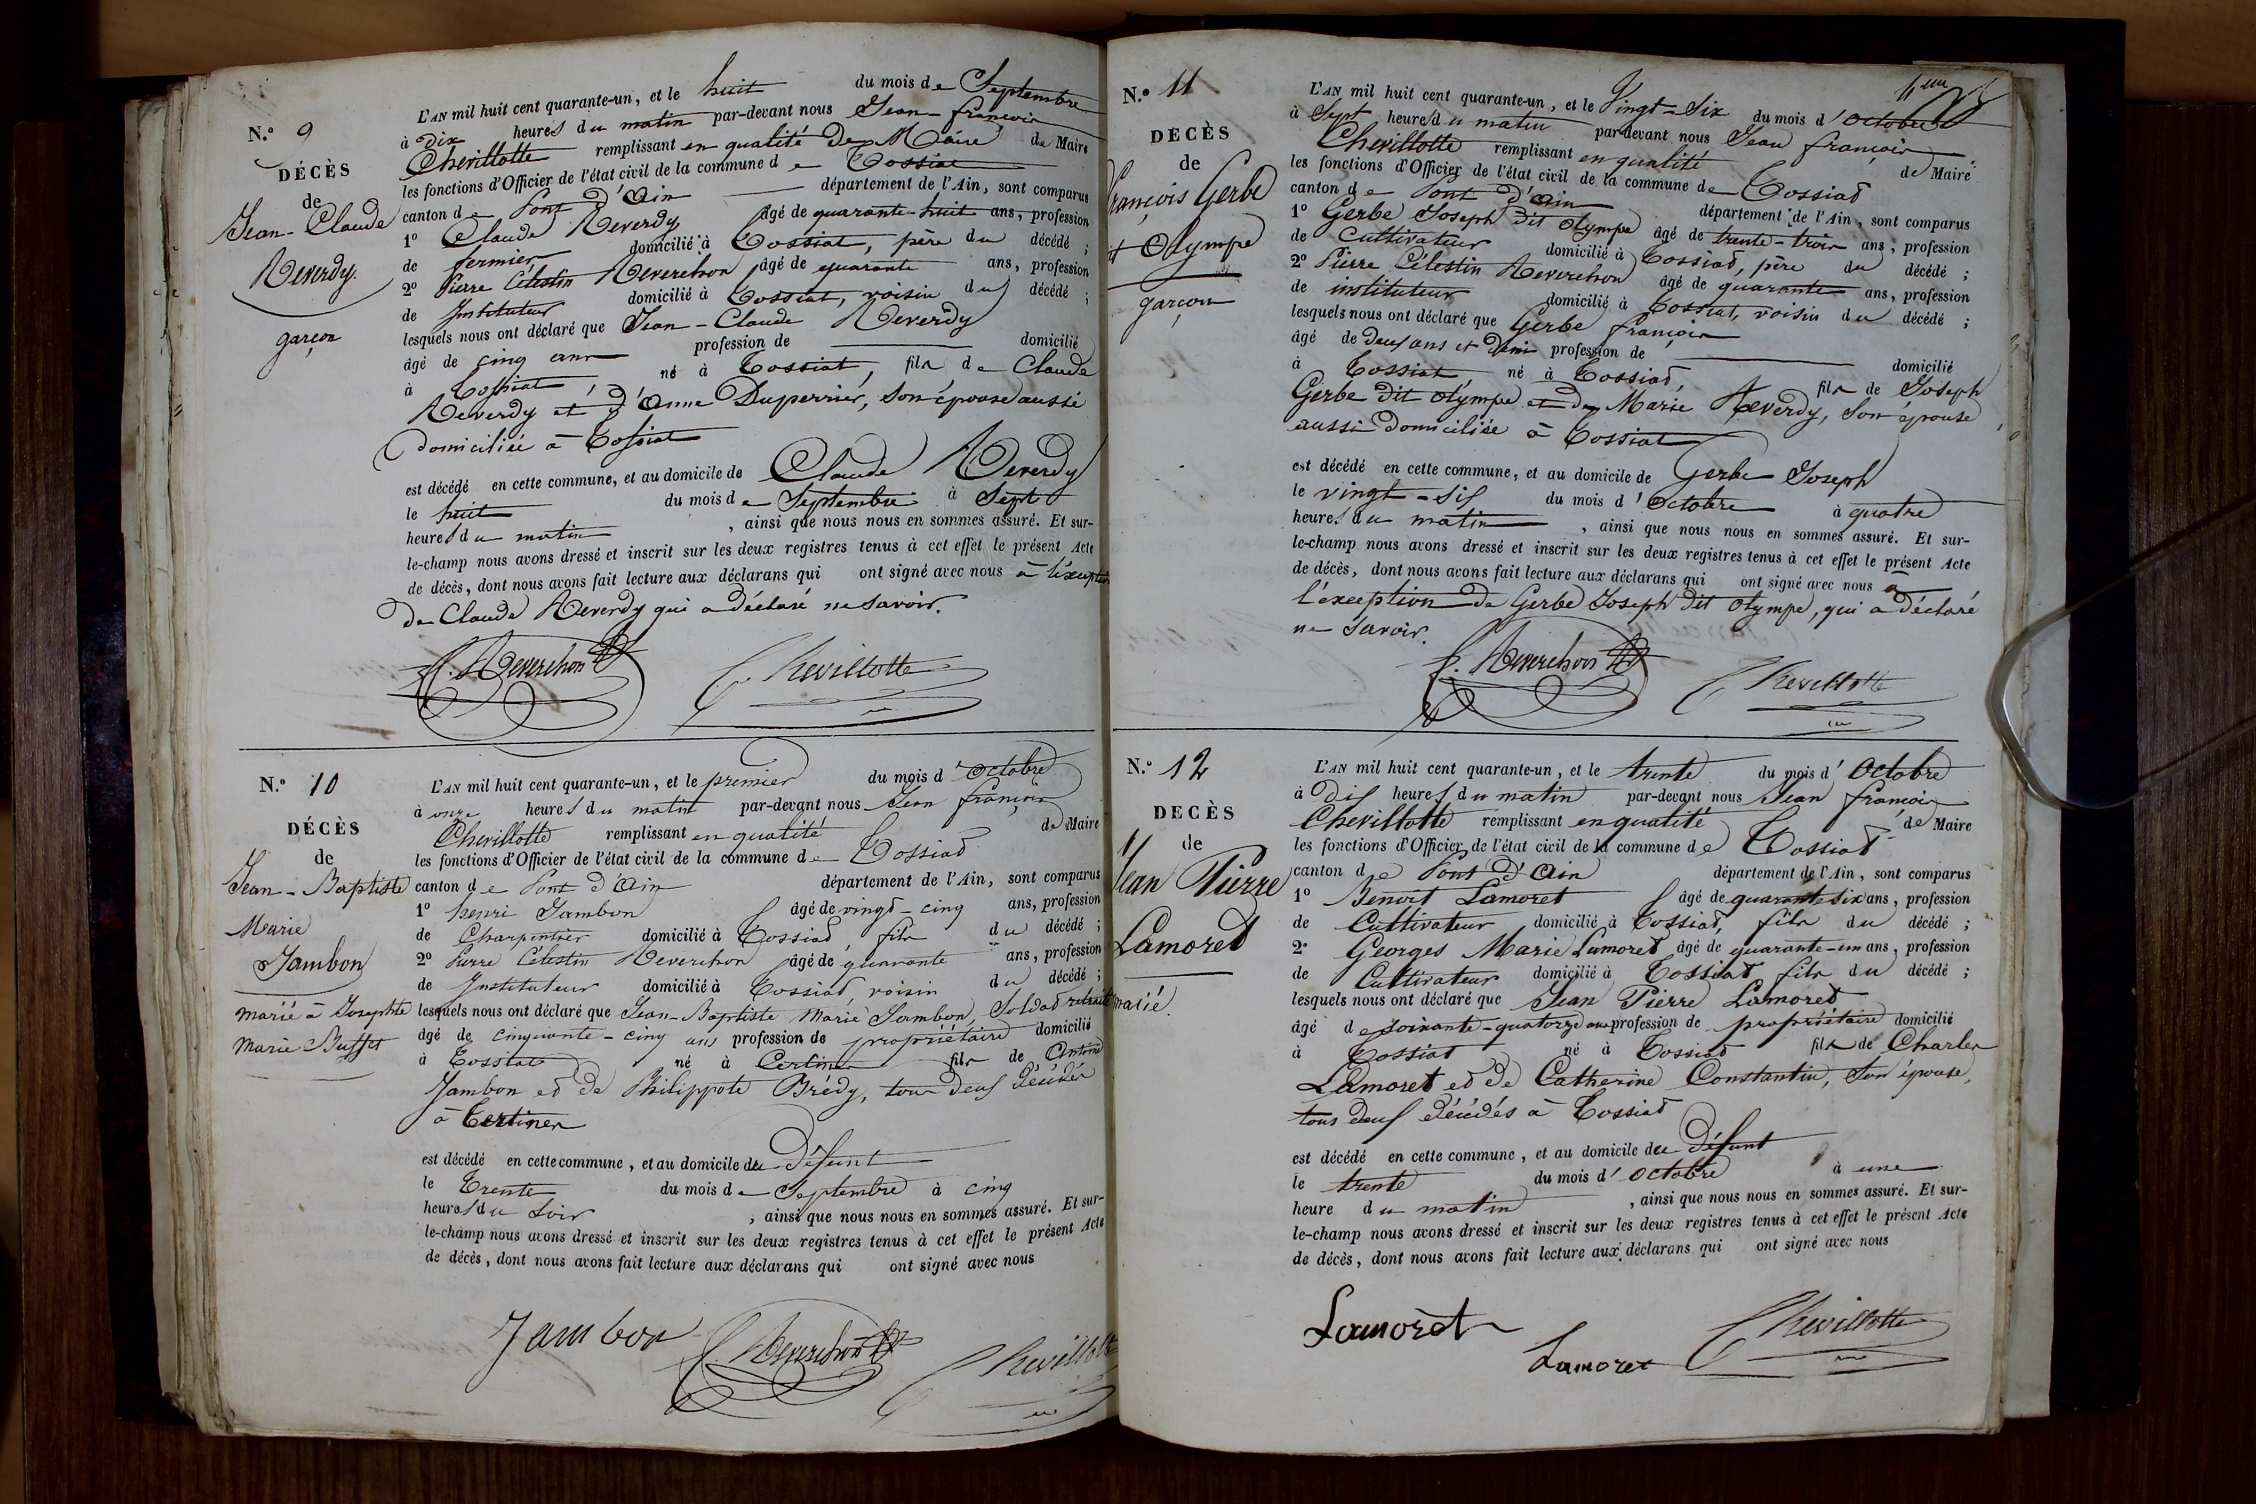 N.º 9
DÉCÈS
de
Jean-Claude
Reverdy.
garçon
L'AN mil huit cent quarante-un, et le huit du mois de Septembre
à dix heures du matin par-devant nous Jean-françois
Chevillotte remplissant en qualité De Maire de Maire
les fonctions d'Officier de l'état civil de la commune de Tossiat
canton de Pont d'Ain département de l'Ain, sont comparus
1º Claude Reverdy âgé de quarante-huit ans, profession
de fermier domicilié à Tossiat, père du décédé ;
2º Pierre Célestin Reverchon âgé de quarante ans, profession
de Instituteur domicilié à Tossiat, voisin du décédé ;
lesquels nous ont déclaré que Jean-Claude Reverdy
âgé de cinq ans profession de domicilié
à Tossiat né à Tossiat, fils de Claude
Reverdy et d'Anne Duperrier, son épouse aussi
domiciliée à Tossiat
est décédé en cette commune, et au domicile de Claude Reverdy
le huit du mois de Septembre à Sept
heures du matin , ainsi que nous nous en sommes assuré. Et sur-
le-champ nous avons dressé et inscrit sur les deux registres tenus à cet effet le présent Acte
de décès, dont nous avons fait lecture aux déclarans qui ont signé avec nous à l'exception
de Claude Reverdy qui a déclaré ne savoir.
C. Reverchon Chevillotte
N.º 10
DÉCÈS
de
Jean-Baptiste
Marie
Jambon
marié à Josephte
Marie Buffet
L'AN mil huit cent quarante-un, et le premier du mois d'octobre
à onze heures du matin par-devant nous Jean françois
Chevillotte remplissant en qualité de Maire
les fonctions d'Officier de l'état civil de la commune de Tossiat
canton de Pont d'Ain département de l'Ain, sont comparus
1º henri Jambon âgé de vingt-cinq ans, profession
de Charpentier domicilié à Tossiat, fils du décédé ;
2º Pierre Célestin Reverchon âgé de quarante ans, profession
de Instituteur domicilié à Tossiat, voisin du décédé ;
lesquels nous ont déclaré que Jean-Baptiste Marie Jambon, Soldat retraité
âgé de cinquante-cinq ans profession de propriétaire domicilié
à Tossiat né à Certines fils de Antoine
Jambon et de Philippote Brédy, tous deux décédés
à Certines
est décédé en cette commune, et au domicile du Défunt
le Trente du mois de Septembre à cinq
heures du soir , ainsi que nous nous en sommes assuré. Et sur-
le-champ nous avons dressé et inscrit sur les deux registres tenus à cet effet le présent Acte
de décès, dont nous avons fait lecture aux déclarans qui ont signé avec nous
Jambon C. Reverchon Chevillotte
N.º 11
DECÈS
de
François Gerbe
dit Olympe
garçon
L'AN mil huit cent quarante-un, et le Vingt-Six du mois d'octobre
à Sept heures du matin par-devant nous Jean françois
Chevillotte remplissant en qualité de Maire
les fonctions d'Officier de l'état civil de la commune de Tossiat
canton de Pont d'Ain département de l'Ain, sont comparus
1º Gerbe Joseph Dit Olympe âgé de trente-trois ans, profession
de Cultivateur domicilié à Tossiat, père du décédé ;
2º Pierre Célestin Reverchon âgé de quarante ans, profession
de instituteur domicilié à Tossiat, voisin du décédé ;
lesquels nous ont déclaré que Gerbe françois
âgé de Deux ans et demi profession de domicilié
à Tossiat né à Tossiat, fils de Joseph
Gerbe Dit Olympe et de Marie Reverdy, Son épouse
aussi Domiciliée à Tossiat
est décédé en cette commune, et au domicile de Gerbe Joseph
le vingt-six du mois d'Octobre à quatre
heures du matin , ainsi que nous nous en sommes assuré. Et sur-
le-champ nous avons dressé et inscrit sur les deux registres tenus à cet effet le présent Acte
de décès, dont nous avons fait lecture aux déclarans qui ont signé avec nous à
l'exception de Gerbe Joseph Dit Olympe, qui a Déclaré
ne savoir.
C. Reverchon Chevillotte
N.º 12
DECÈS
de
Jean Pierre
Lamoret
marié.
L'AN mil huit cent quarante-un, et le trente du mois d'Octobre
à Dix heures du matin par-devant nous Jean françois
Chevillotte remplissant en qualité de Maire
les fonctions d'Officier de l'état civil de la commune de Tossiat
canton de Pont d'Ain département de l'Ain, sont comparus
1º Benoit Lamoret âgé de quarante six ans, profession
de Cultivateur domicilié à Tossiat, fils du décédé ;
2º Georges Marie Lamoret âgé de quarante-un ans, profession
de Cultivateur domicilié à Tossiat fils du décédé ;
lesquels nous ont déclaré que Jean Pierre Lamoret
âgé de soixante-quatorze ans profession de propriétaire domicilié
à Tossiat né à Tossiat fils de Charles
Lamoret et de Catherine Constantin, son épouse,
tous deux décédés à Tossiat
est décédé en cette commune, et au domicile du Défunt
le trente du mois d'octobre à une
heure du matin , ainsi que nous nous en sommes assuré. Et sur-
le-champ nous avons dressé et inscrit sur les deux registres tenus à cet effet le présent Acte
de décès, dont nous avons fait lecture aux déclarans qui ont signé avec nous
Lamoret Lamoret Chevillotte